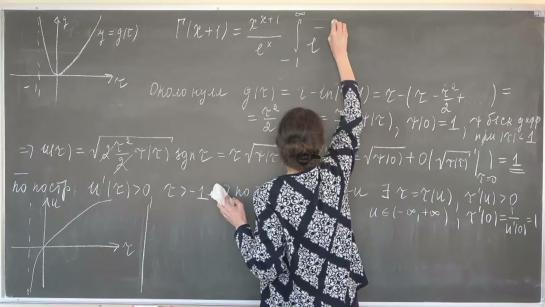 y = g(τ)
Γ(x+1) = x^{x+1}/e^x ∫_{-1}^{∞} e^{-
-1
τ
Около нуля g(τ) = τ - ln( ) = τ - (τ - τ²/2 + ...) =
= τ²/2 τ(τ), r(0) = 1, r беск дифф
при |τ| < 1
⇒ u(τ) = √(2 τ²/2 r(τ)) sgn τ = τ √r(τ) = √r(0) + 0(√r(τ))'|_{τ=0} = 1
по постр. u'(τ) > 0 τ > -1 ⇒ по ∃ τ = τ(u), τ'(u) > 0
u ∈ (-∞, +∞), τ'(0) = 1/u'(0) = 1
u
τ